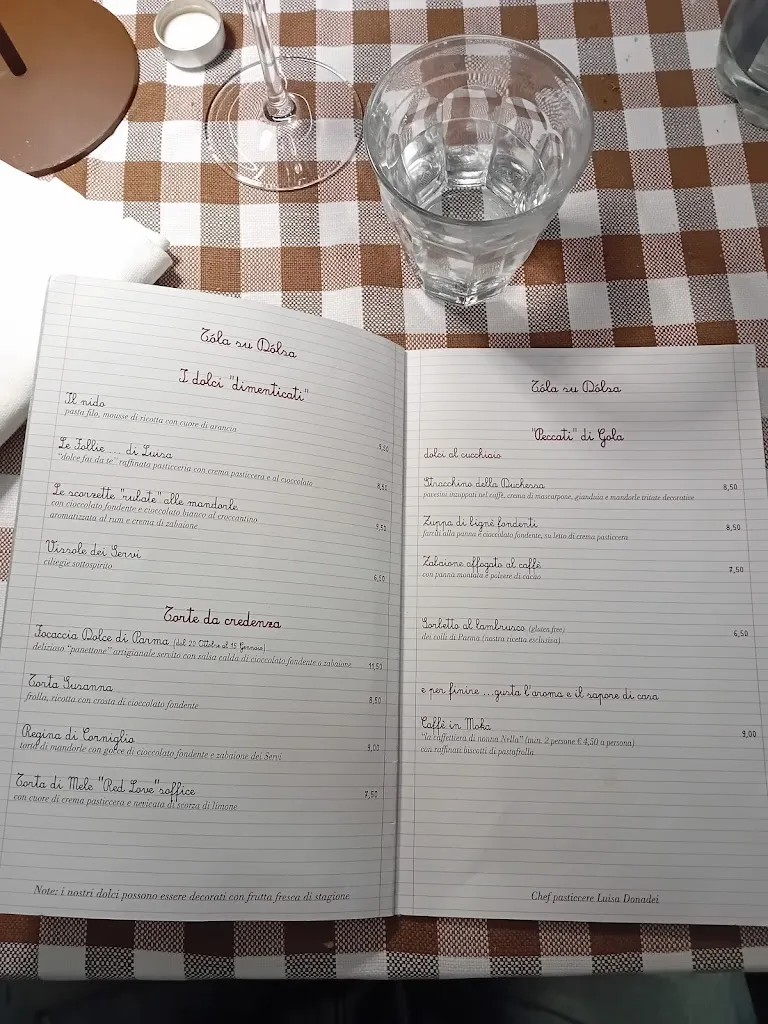 Tóla su Dólsa
I dolci "dimenticati"
Il nido
pasta filo, mousse di ricotta con cuore di arancia
9,00
Le Follie ... di Luisa
"dolce fai da te" raffinata pasticceria con crema pasticcera e al cioccolato
8,50
Le scorzette "rubate" alle mandorle
con cioccolato fondente e cioccolato bianco al croccantino
aromatizzata al rum e crema di zabaione
9,50
Vissole dei Servi
ciliegie sottospirito
6,50
Torte da credenza
Focaccia Dolce di Parma (dal 20 Ottobre al 15 Gennaio)
delizioso "panettone" artigianale servito con salsa calda di cioccolato fondente o zabaione 11,50
Torta Susanna
frolla, ricotta con crosta di cioccolato fondente 8,50
Regina di Corniglio
torta di mandorle con gocce di cioccolato fondente e zabaione dei Servi 9,00
Torta di Mele "Red Love" soffice 7,50
con cuore di crema pasticcera e nevicata di scorza di limone
Note: i nostri dolci possono essere decorati con frutta fresca di stagione
Tóla su Dólsa
"Peccati" di Gola
dolci al cucchiaio
Stracchino della Duchessa 8,50
pavesini inzuppati nel caffè, crema di mascarpone, gianduia e mandorle tritate decorative
Zuppa di bignè fondenti 8,50
farciti alla panna e cioccolato fondente, su letto di crema pasticcera
Zabaione affogato al caffè 7,50
con panna montata e polvere di cacao
Sorbetto al lambrusco (gluten free) 6,50
dei colli di Parma (nostra ricetta esclusiva)
e per finire ...gusta l'aroma e il sapore di casa
Caffè in Moka 9,00
"la caffettiera di nonna Nella" (min. 2 persone € 4,50 a persona)
con raffinati biscotti di pastafrolla
Chef pasticcere Luisa Donadei